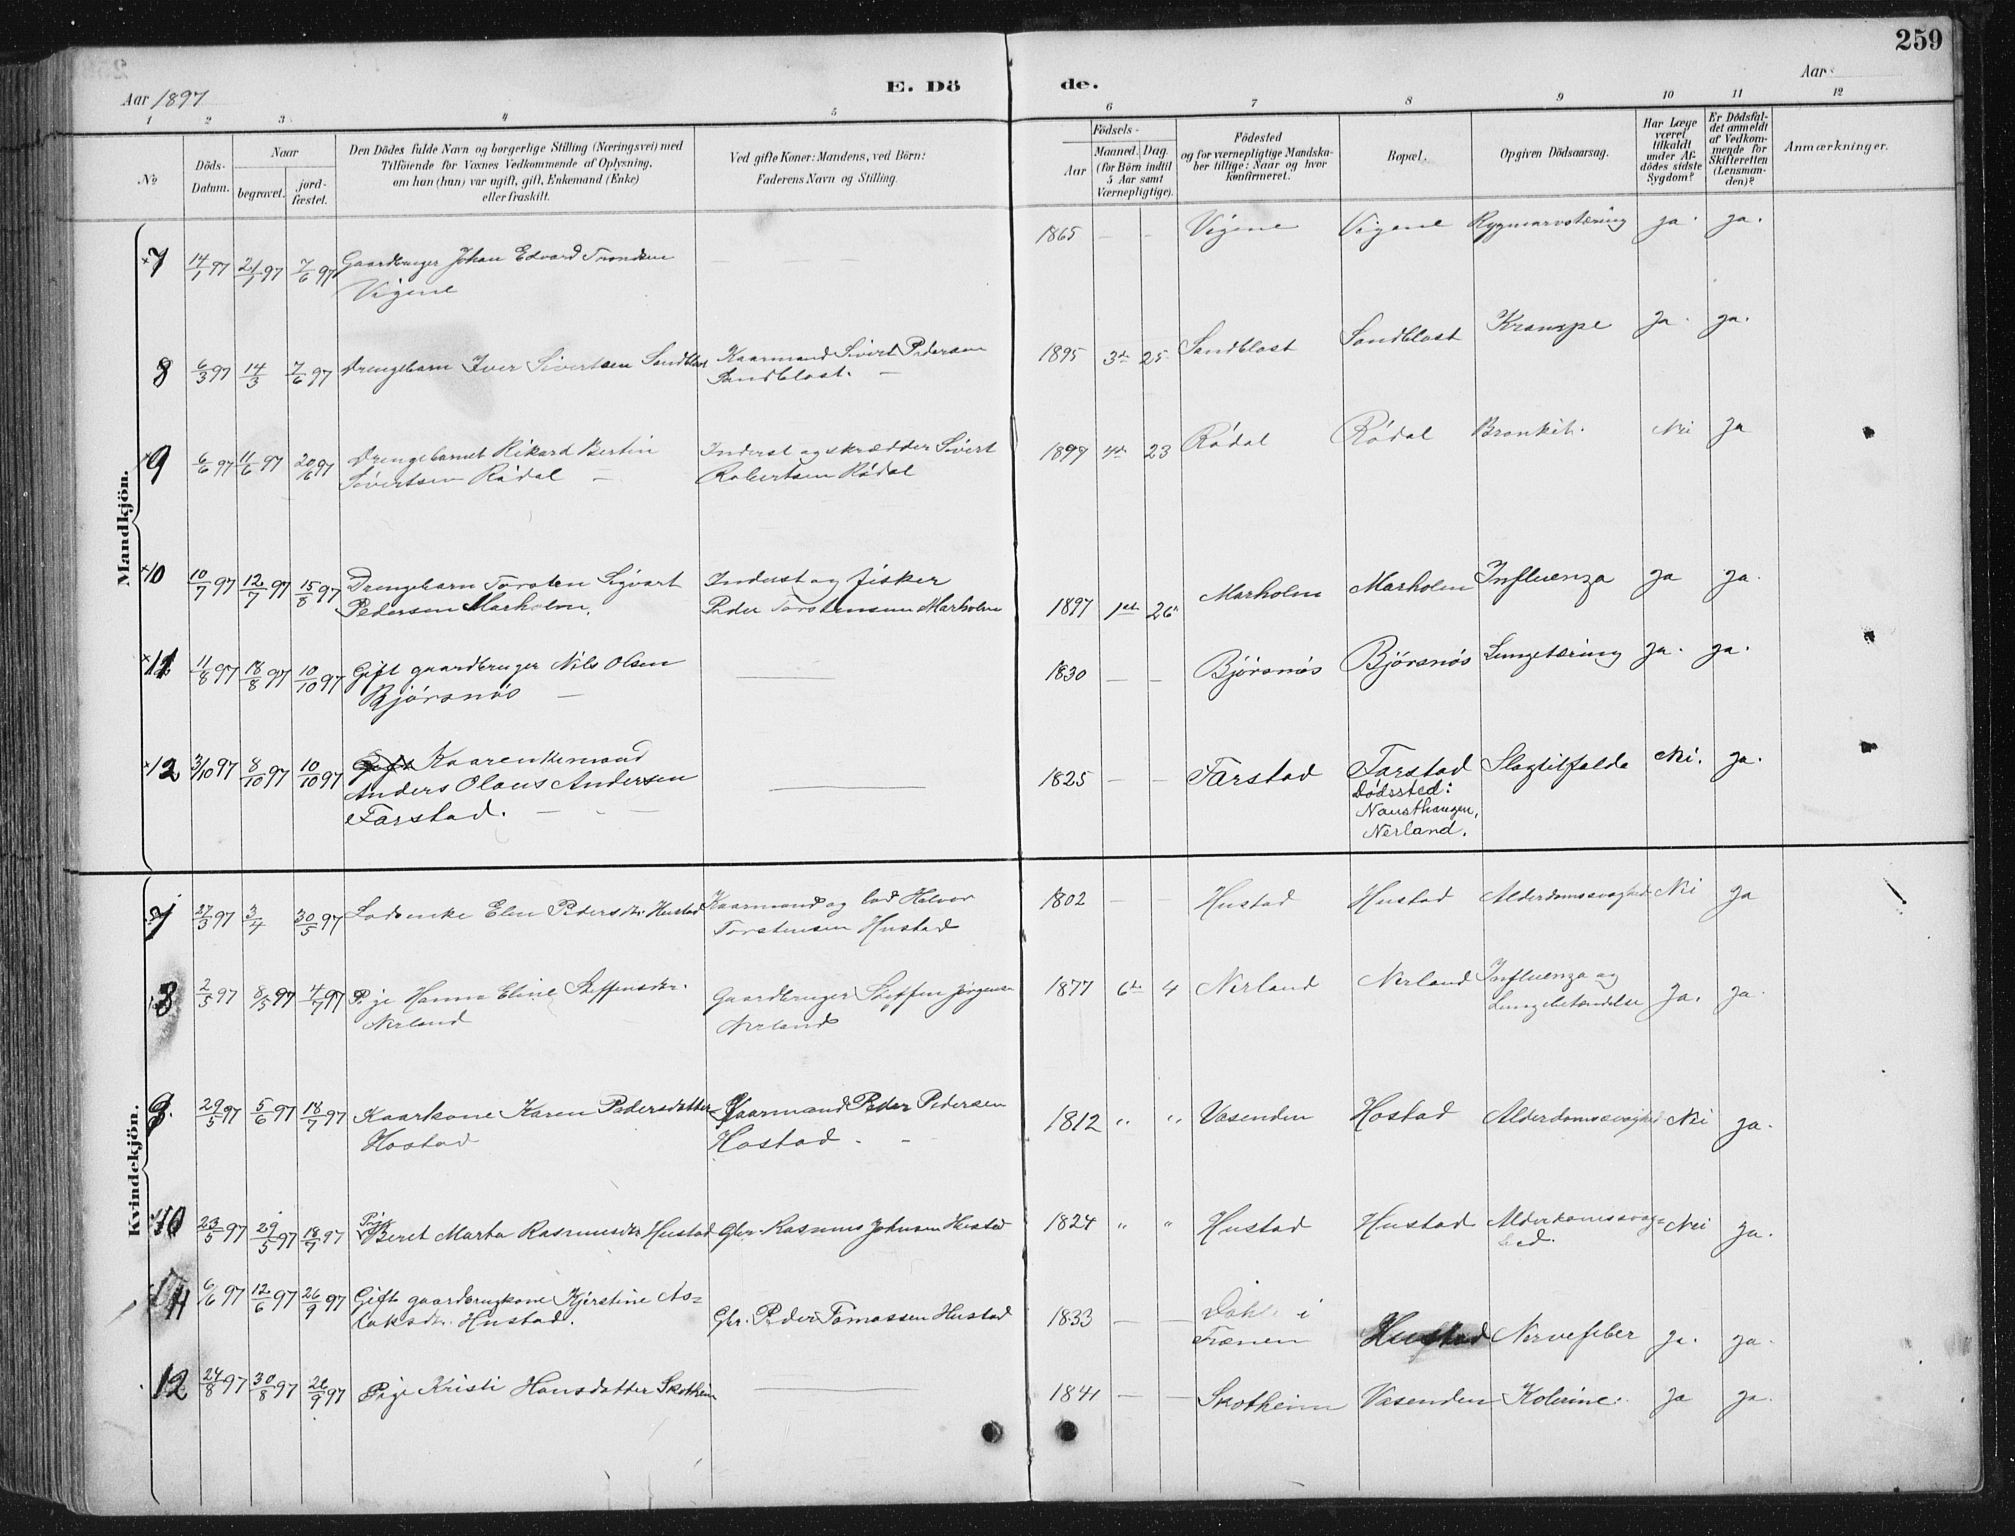 259
Aar 1897
E. Dö
de.
Aar
1 2 3 4 5 6 7 8 9 10 11 12
No
Döds-
Datum.
Naar
begravet.
jord-
fæstet.
Den Dödes fulde Navn og borgerlige Stilling (Næringsvei) med
Tilföiende for Voxnes Vedkommende af Oplysning,
om han (hun) var ugift, gift, Enkemand (Enke)
eller fraskilt.
Ved gifte Koner: Mandens, ved Börn:
Faderens Navn og Stilling.
Födsels-
Aar
Maaned. Dag.
(for Börn indtil
5 Aar samt
Værnepligtige).
Födested
og for værnepligtige Mandska-
ber tillige: Naar og hvor
konfirmeret.
Bopæl.
Opgiven Dödsaarsag.
Har Læge
været
tilkaldt
under Af-
dödes sidste
Sygdom?
Er Dödsfal-
det anmeldt
af Vedkom-
mende for
Skifteretten
(Lensman-
den)?
Anmærkninger.
Mandkjön.
7 14/1 97 21/1 97 7/6 97 Gaardbruger Johan Edvard Trondsen
Vigene
1865 — — Vigene Vigene Rygmarvstæring ja. ja.
8 6/3 97 14/3 7/6 97 Drengebarn Iver Sivertsen Sandblost
Kaarmand Sivert Pedersen
Sandblost. —
1895 3de 25 Sandblost Sandblost Krampe ja. ja.
9 6/6 97 11/6 97 20/6 97 Drengebarnet Rikard Bertin
Sivertsen Rödal —
Inderst og skrædder Sivert
Robertsen Rödal
1897 4de 23 Rödal Rödal Bronkit. Nei ja
10 10/7 97 12/7 97 15/8 97 Drengebarn Torsten Sigvart
Pedersen Marholm.
Inderst og fisker
Peder Torstensen Marholm
1897 1ste 26 Marholm Marholm Influenza ja ja.
11 11/8 97 18/8 97 10/10 97 Gift gaardbruger Nils Olsen
Bjørsnøs —
1830 — — Bjørsnøs Bjørsnøs Lungetæring ja. ja.
12 3/10 97 8/10 97 10/10 97 Gift Kaarenkemand
Anders Olaus Andersen
Farstad. — —
1825 — — Farstad Farstad Slagtilfælde Nei. ja.
Dødssted:
Nausthaugen,
Nerland.
Kvindekjön.
7 27/3 97 3/4 30/5 97 Lodsenke Elen Pedersdtr. Hustad
Kaarmand og lods Halvor
Torstensen Hustad
1802 — — Hustad Hustad Alderdomssvaghed Nei ja
8 2/5 97 8/5 97 4/7 97 Pige Hanna Eline Steffensdtr.
Nerland
Gaardbruger Steffen Jörgensen
Nerland
1877 6te 4 Nerland Nerland Influenza og
Lungebetændelse ja. ja.
9. 29/5 97 5/6 97 18/7 97 Kaarkone Karen Pedersdatter
Hostad
Kaarmand Peder Pedersen
Hostad. —
1812 " " Vasenden Hostad Alderdomssvaghed Nei ja.
10 23/5 97 29/5 97 18/7 97 Pige
Beret Marta Rasmusdtr Hustad Gbr. Rasmus Johnsen Hustad
1824 " " Hustad Hustad Alderdomssvag-
hed. Nei ja.
11 6/6 97 12/6 97 26/9 97 Gift gaardbrugkone Kjerstine As=
laksdtr. Hustad.
Gbr. Peder Tomassen Hustad
1833 — — i
Frænen Hustad Nervefeber ja. ja.
12 24/8 97 30/8 97 26/9 97 Pige Kristi Hansdatter Skotheim
1841 — — Skotheim Vasenden Kolerine. ja ja.